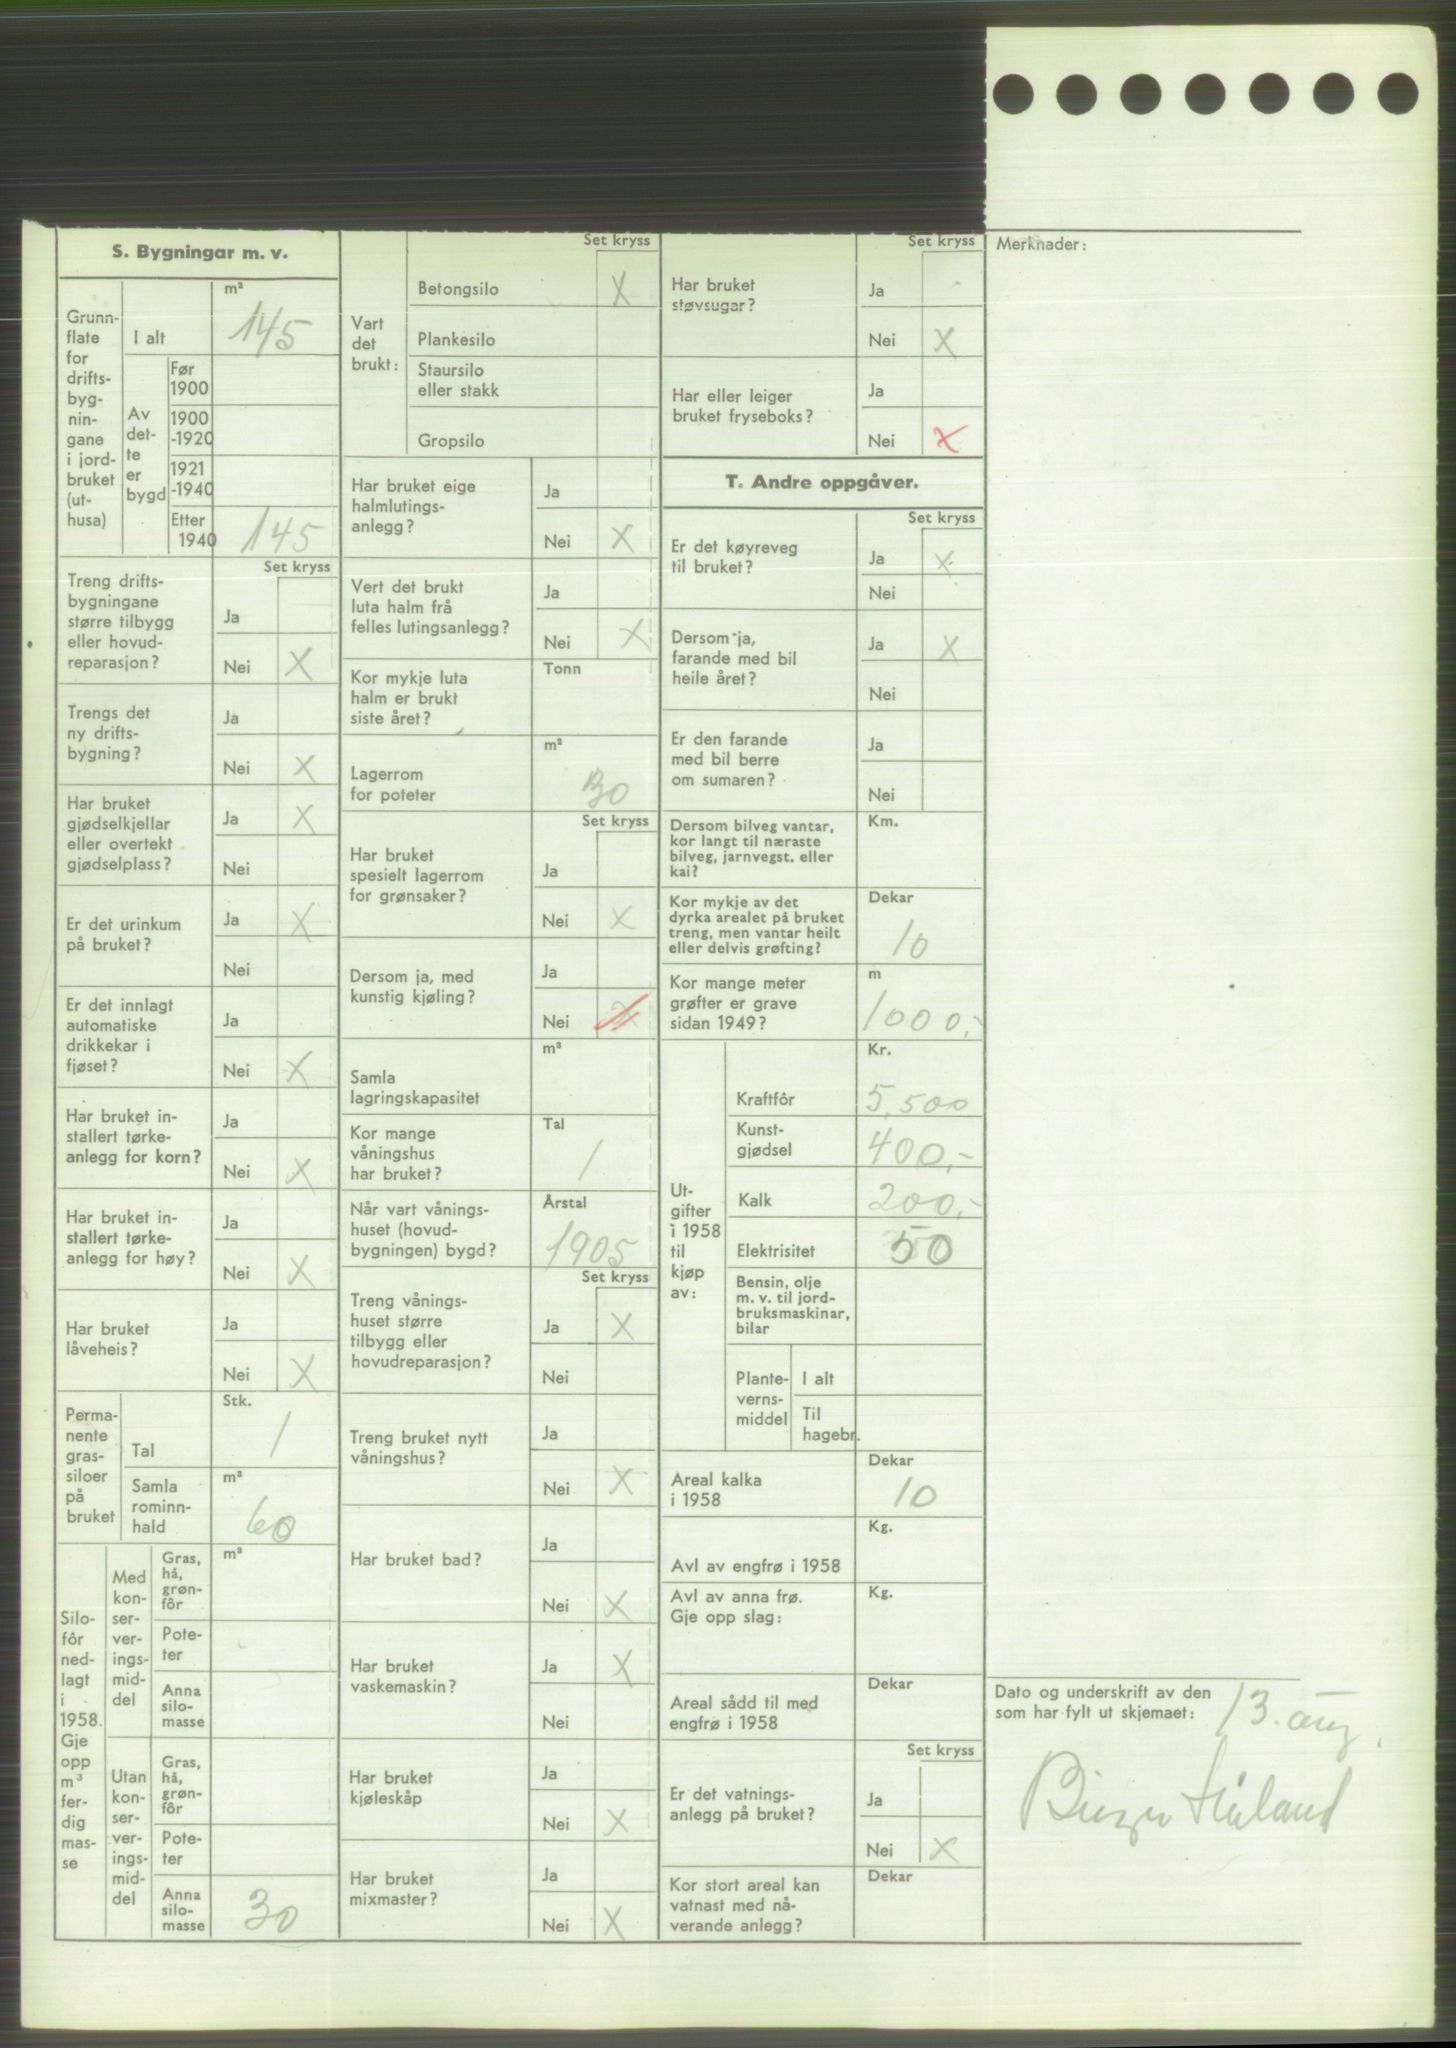 S. Bygningar m. v.
Grunn-
flate
for
drifts-
byg-
nin-
gane
i jord-
bruket
(ut-
husa)
I alt
m²
145
Av
det-
te
er
bygd
Før
1900
1900
-1920
1921
-1940
Etter
1940
145
Set kryss
Treng drifts-
bygningane
større tilbygg
eller hovud-
reparasjon?
Ja
Nei X
Trengs det
ny drifts-
bygning?
Ja
Nei X
Har bruket
gjødselkjellar
eller overtekt
gjødselplass?
Ja X
Nei
Er det urinkum
på bruket?
Ja X
Nei
Er det innlagt
automatiske
drikkekar i
fjøset?
Ja
Nei X
Har bruket in-
stallert tørke-
anlegg for korn?
Ja
Nei X
Har bruket in-
stallert tørke-
anlegg for høy?
Ja
Nei X
Har bruket
låveheis?
Ja
Nei X
Perma-
nente
gras-
siloer
på
bruket
Tal
Stk.
1
Samla
rominn-
hald
m³
60
Silo-
fôr
ned-
lagt
i
1958.
Gje
opp
m³
fer-
dig
mas-
se
Med
kon-
ser-
ver-
ings-
mid-
del
Gras,
hå,
grøn-
fôr
m³
Pote-
ter
Anna
silo-
masse
Utan
kon-
ser-
ver-
ings-
mid-
del
Gras,
hå,
grøn-
fôr
Pote-
ter
Anna
silo-
masse
30
Set kryss
Vart
det
brukt:
Betongsilo X
Plankesilo
Staursilo
eller stakk
Gropsilo
Har bruket eige
halmlutings-
anlegg?
Ja
Nei X
Vert det brukt
luta halm frå
felles lutingsanlegg?
Ja
Nei X
Kor mykje luta
halm er brukt
siste året?
Tonn
Lagerrom
for poteter
m³
30
Set kryss
Har bruket
spesielt lagerrom
for grønsaker?
Ja
Nei X
Dersom ja, med
kunstig kjøling?
Ja
Nei X
Samla
lagringskapasitet
m³
Kor mange
våningshus
har bruket?
Tal
1
Når vart vånings-
huset (hovud-
bygningen) bygd?
Årstal
1905
Set kryss
Treng vånings-
huset større
tilbygg eller
hovudreparasjon?
Ja X
Nei
Treng bruket nytt
våningshus?
Ja
Nei X
Har bruket bad?
Ja
Nei X
Har bruket
vaskemaskin?
Ja X
Nei
Har bruket
kjøleskåp
Ja
Nei X
Har bruket
mixmaster?
Ja
Nei X
Set kryss
Har bruket
støvsugar?
Ja
Nei X
Har eller leiger
bruket fryseboks?
Ja
Nei X
T. Andre oppgåver.
Set kryss
Er det køyreveg
til bruket?
Ja X
Nei
Dersom ja,
farande med bil
heile året?
Ja X
Nei
Er den farande
med bil berre
om sumaren?
Ja
Nei
Dersom bilveg vantar,
kor langt til næraste
bilveg, jarnvegst. eller
kai?
Km.
Kor mykje av det
dyrka arealet på bruket
treng, men vantar heilt
eller delvis grøfting?
Dekar
10
Kor mange meter
grøfter er grave
sidan 1949?
m
1000,-
Ut-
gifter
i 1958
til
kjøp
av:
Kr.
Kraftfôr 5.500
Kunst-
gjødsel 400,-
Kalk 200,-
Elektrisitet 50
Bensin, olje
m. v. til jord-
bruksmaskinar,
bilar
Plante-
verns-
middel
I alt
Til
hagebr.
Areal kalka
i 1958
Dekar
10
Avl av engfrø i 1958
Kg.
Avl av anna frø.
Gje opp slag:
Kg.
Areal sådd til med
engfrø i 1958
Dekar
Set kryss
Er det vatnings-
anlegg på bruket?
Ja
Nei X
Kor stort areal kan
vatnast med nå-
verande anlegg?
Dekar
Merknader:
Dato og underskrift av den
som har fylt ut skjemaet: 13. aug.
Birger